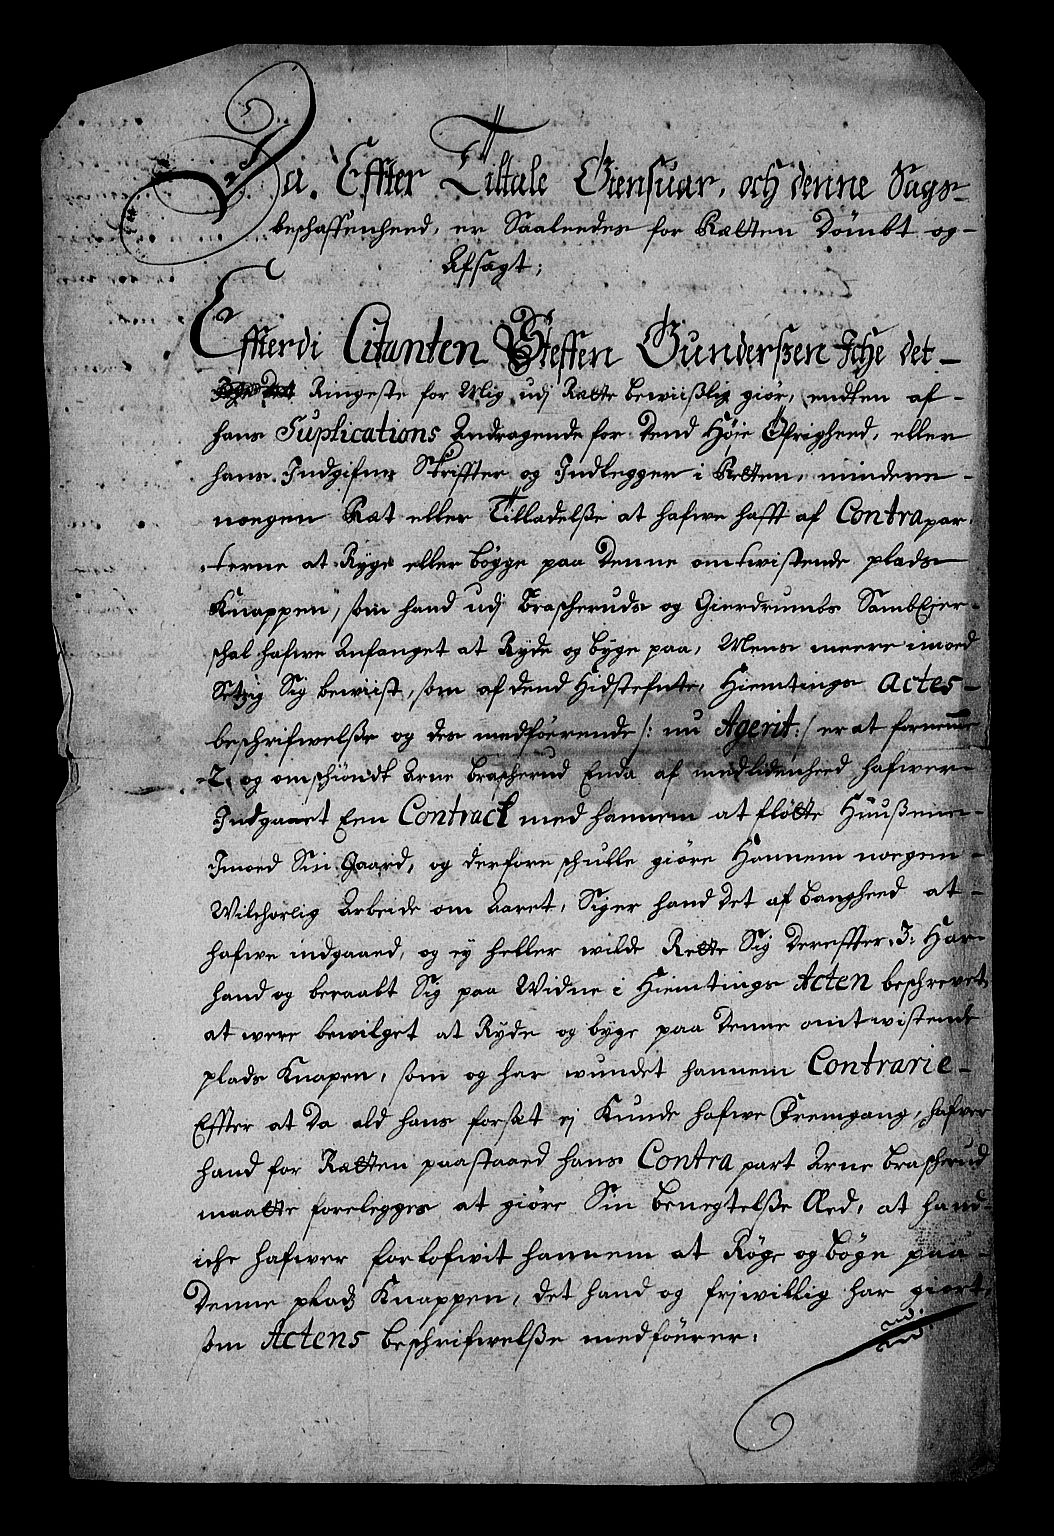 Da. Effter Tiltale Giensuar, och denne Sags-
beschaffenheed, er Saaleedes for Rætten Dömbt og-
Afsagt;
Effterdi Citanten Steffen Gunderßen Iche det-
Ringeste for Mig udj Rætte beviißlig giör, endten af-
hans Suplications Andragende for Dend Höje Öfrigheed, eller
hans Indgifne Skriffter og Indlegger i Retten, mindere-
noegen Ræt eller Tilladelße at hafwe hafft af Contrapar-
terne at Ryge eller bögge paa Denne omtwistende plads
Knappen, som hand udj Brascheruds og Gierdrumbs SambEjer-
schal hafwe Anfanget at Ryde og byge paa, Mens meere imoed
Setzig Sig beviist, som af dend Hidstefnte, Hiemtings Actes-
beschrifwelße og des medföerende /: nu Agerit :/ er at fornemme
2. og omschiöndt Arne Brascherud Enda af medlidenheed hafwer
Indgaaet Een Contract med hannem at flötte Huußene-
Imoed Sin Gaard, og derfore schulle giöre Hannem noegen-
Wilchorlig Arbeide om Aaret, Siger hand det af bangheed at-
hafwe indgaaed, og ej heller wilde Rette Sig Dereffter. 3. Har-
hand og beraabt Sig paa Widne i Hiemtings Acten beschrevet,
at were bewilget at Ryde og byge paa Denne omtwistende
plads Knapen, som og har wundet hannem Contrarie-
Effter at Da ald hans forsæt ej Kunde hafwe Fremgang, hafver
hand for Rætten paastaaed hans Contra part Arne Brascherud
maatte forelegges at giöre Sin Benegtelße Æd, at hand-
iche hafwer forlofwit hannem at Röge og bögn paa-
Denne pladz Knappen, det hand og frjwillig har giort,
som Actens beschrifwelße medföerer: